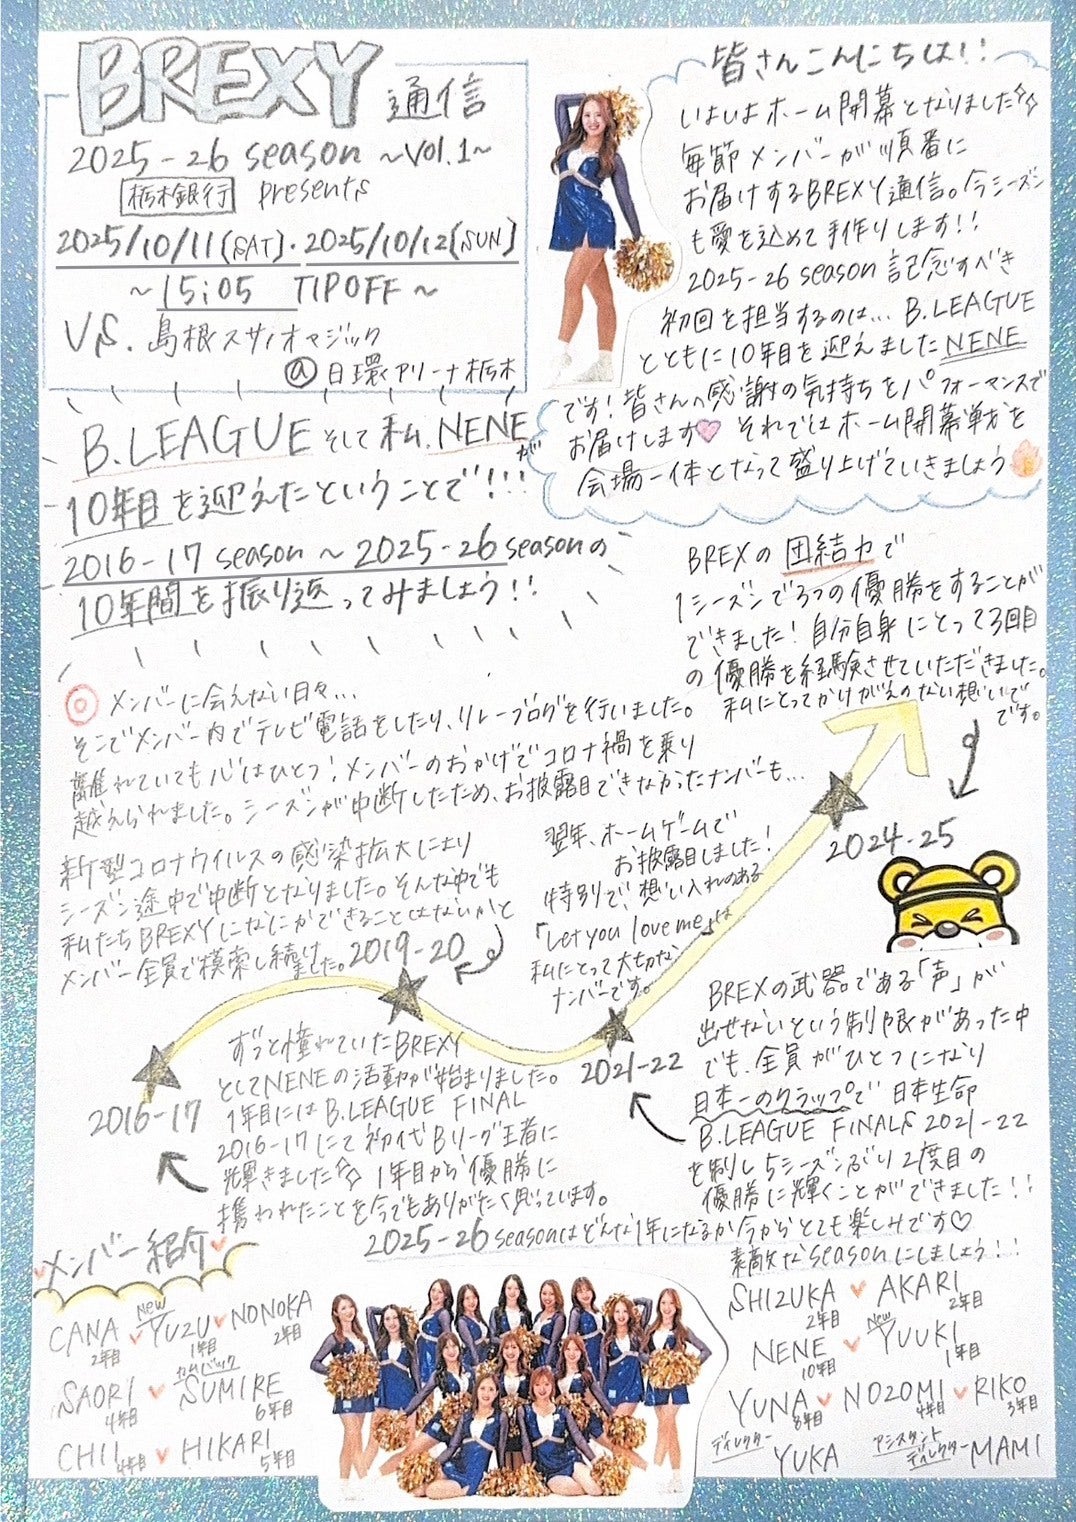 BREXY 通信
2025-26 season ~Vol.1~
栃木銀行 presents
2025/10/11(SAT)・2025/10/12(SUN)
~15:05 TIPOFF~
VS. 島根スサノオマジック
@日環アリーナ栃木
皆さんこんにちは!!
いよいよホーム開幕となりました
毎節メンバーが順番に
お届けするBREXY通信。今シーズン
も愛を込めて手作りします!!
2025-26 season 記念すべき
初回を担当するのは… B.LEAGUE
とともに10年目を迎えましたNENE
です! 皆さんへ感謝の気持ちをパフォーマンスで
お届けします それではホーム開幕戦を
会場一体となって盛り上げていきましょう
B.LEAGUEそして私、NENEが
10年目を迎えたということで!!!
2016-17 season ~ 2025-26 seasonの
10年間を振り返ってみましょう!!
BREXの団結力で
1シーズンで3つの優勝をすることが
できました! 自分自身にとって3回目
の優勝を経験させていただきました。
私にとってかけがえのない想いで
です。
2024-25
◎メンバーに会えない日々…
そこでメンバー内でテレビ電話をしたり、リレーブログを行いました。
離れていても心はひとつ! メンバーのおかげでコロナ禍を乗り
越えられました。シーズンが中断したため、お披露目できなかったナンバーも…
新型コロナウイルスの感染拡大により
シーズン途中で中断となりました。そんな中でも
私たちBREXYになにかできることはないかと
メンバー全員で模索し続けました。
2019-20
翌年、ホームゲームで
お披露目しました!
特別で、想い入れのある
「Let you love me」は
私にとって大切な
ナンバーです。
ずっと憧れていたBREXY
としてNENEの活動が始まりました。
1年目にはB.LEAGUE FINAL
2016-17にて初代Bリーグ王者に
輝きました 1年目から優勝に
携われたことを今でもありがたく思っています。
2016-17
2021-22
BREXの武器である「声」が
出せないという制限があった中
でも、全員がひとつになり
日本一のクラップで 日本生命
B.LEAGUE FINALS 2021-22
を制し5シーズンぶり2度目の
優勝に輝くことができました!!
2025-26 seasonはどんな1年になるか今からとても楽しみです♡
素敵なseasonにしましょう!!
メンバー紹介
CANA 2年目 ♥ New YUZU 1年目 ♥ NONOKA 2年目
SAORI 4年目 ♥ カムバック SUMIRE 6年目
CHII 4年目 ♥ HIKARI 5年目
SHIZUKA 2年目 ♥ AKARI 2年目
NENE 10年目 ♥ New YUUKI 1年目
YUNA 8年目 ♥ NOZOMI 4年目 ♥ RIKO 3年目
ディレクター YUKA アシスタントディレクター MAMI